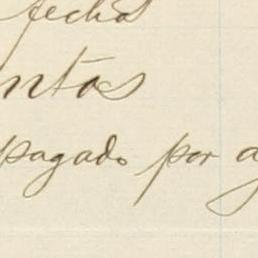 fecha
ntos
pagado por